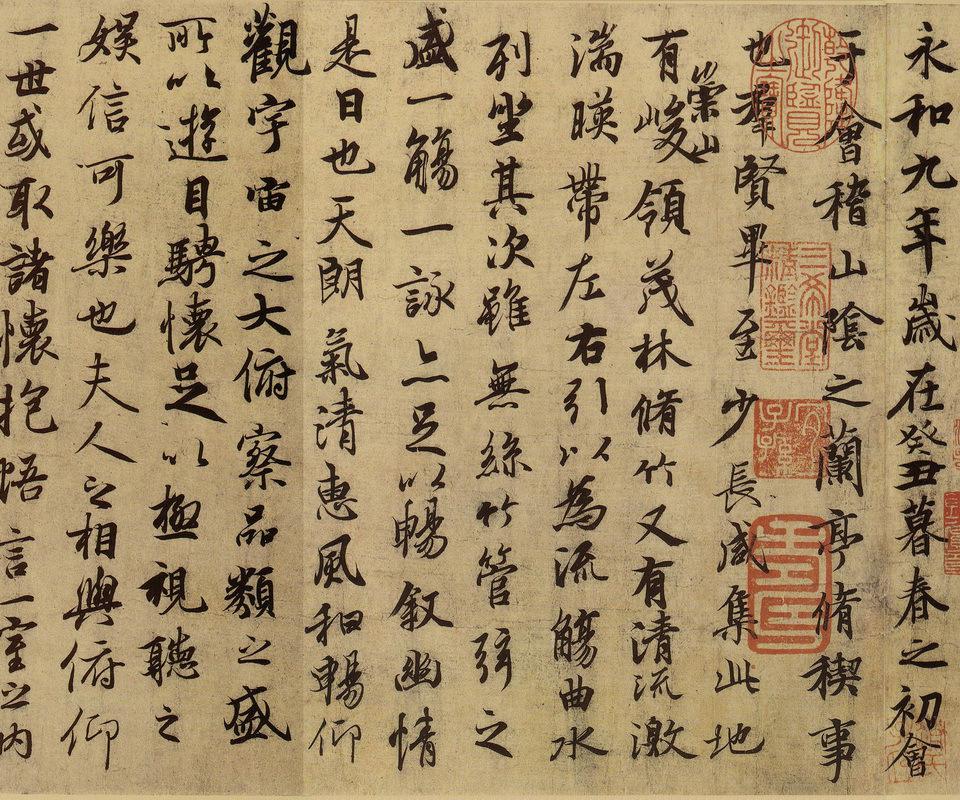 永和九年歲在癸丑暮春之初會
于會稽山陰之蘭亭脩稧事
也羣賢畢至少長咸集此地
有崇山峻領茂林脩竹又有清流激
湍暎帶左右引以為流觴曲水
列坐其次雖無絲竹管弦之
盛一觴一詠亦足以暢叙幽情
是日也天朗氣清惠風和暢仰
觀宇宙之大俯察品類之盛
所以遊目騁懷足以極視聽之
娛信可樂也夫人之相與俯仰
一世或取諸懷抱悟言一室之內
乾隆御覽之寶
三希堂精鑑璽
宜子孫